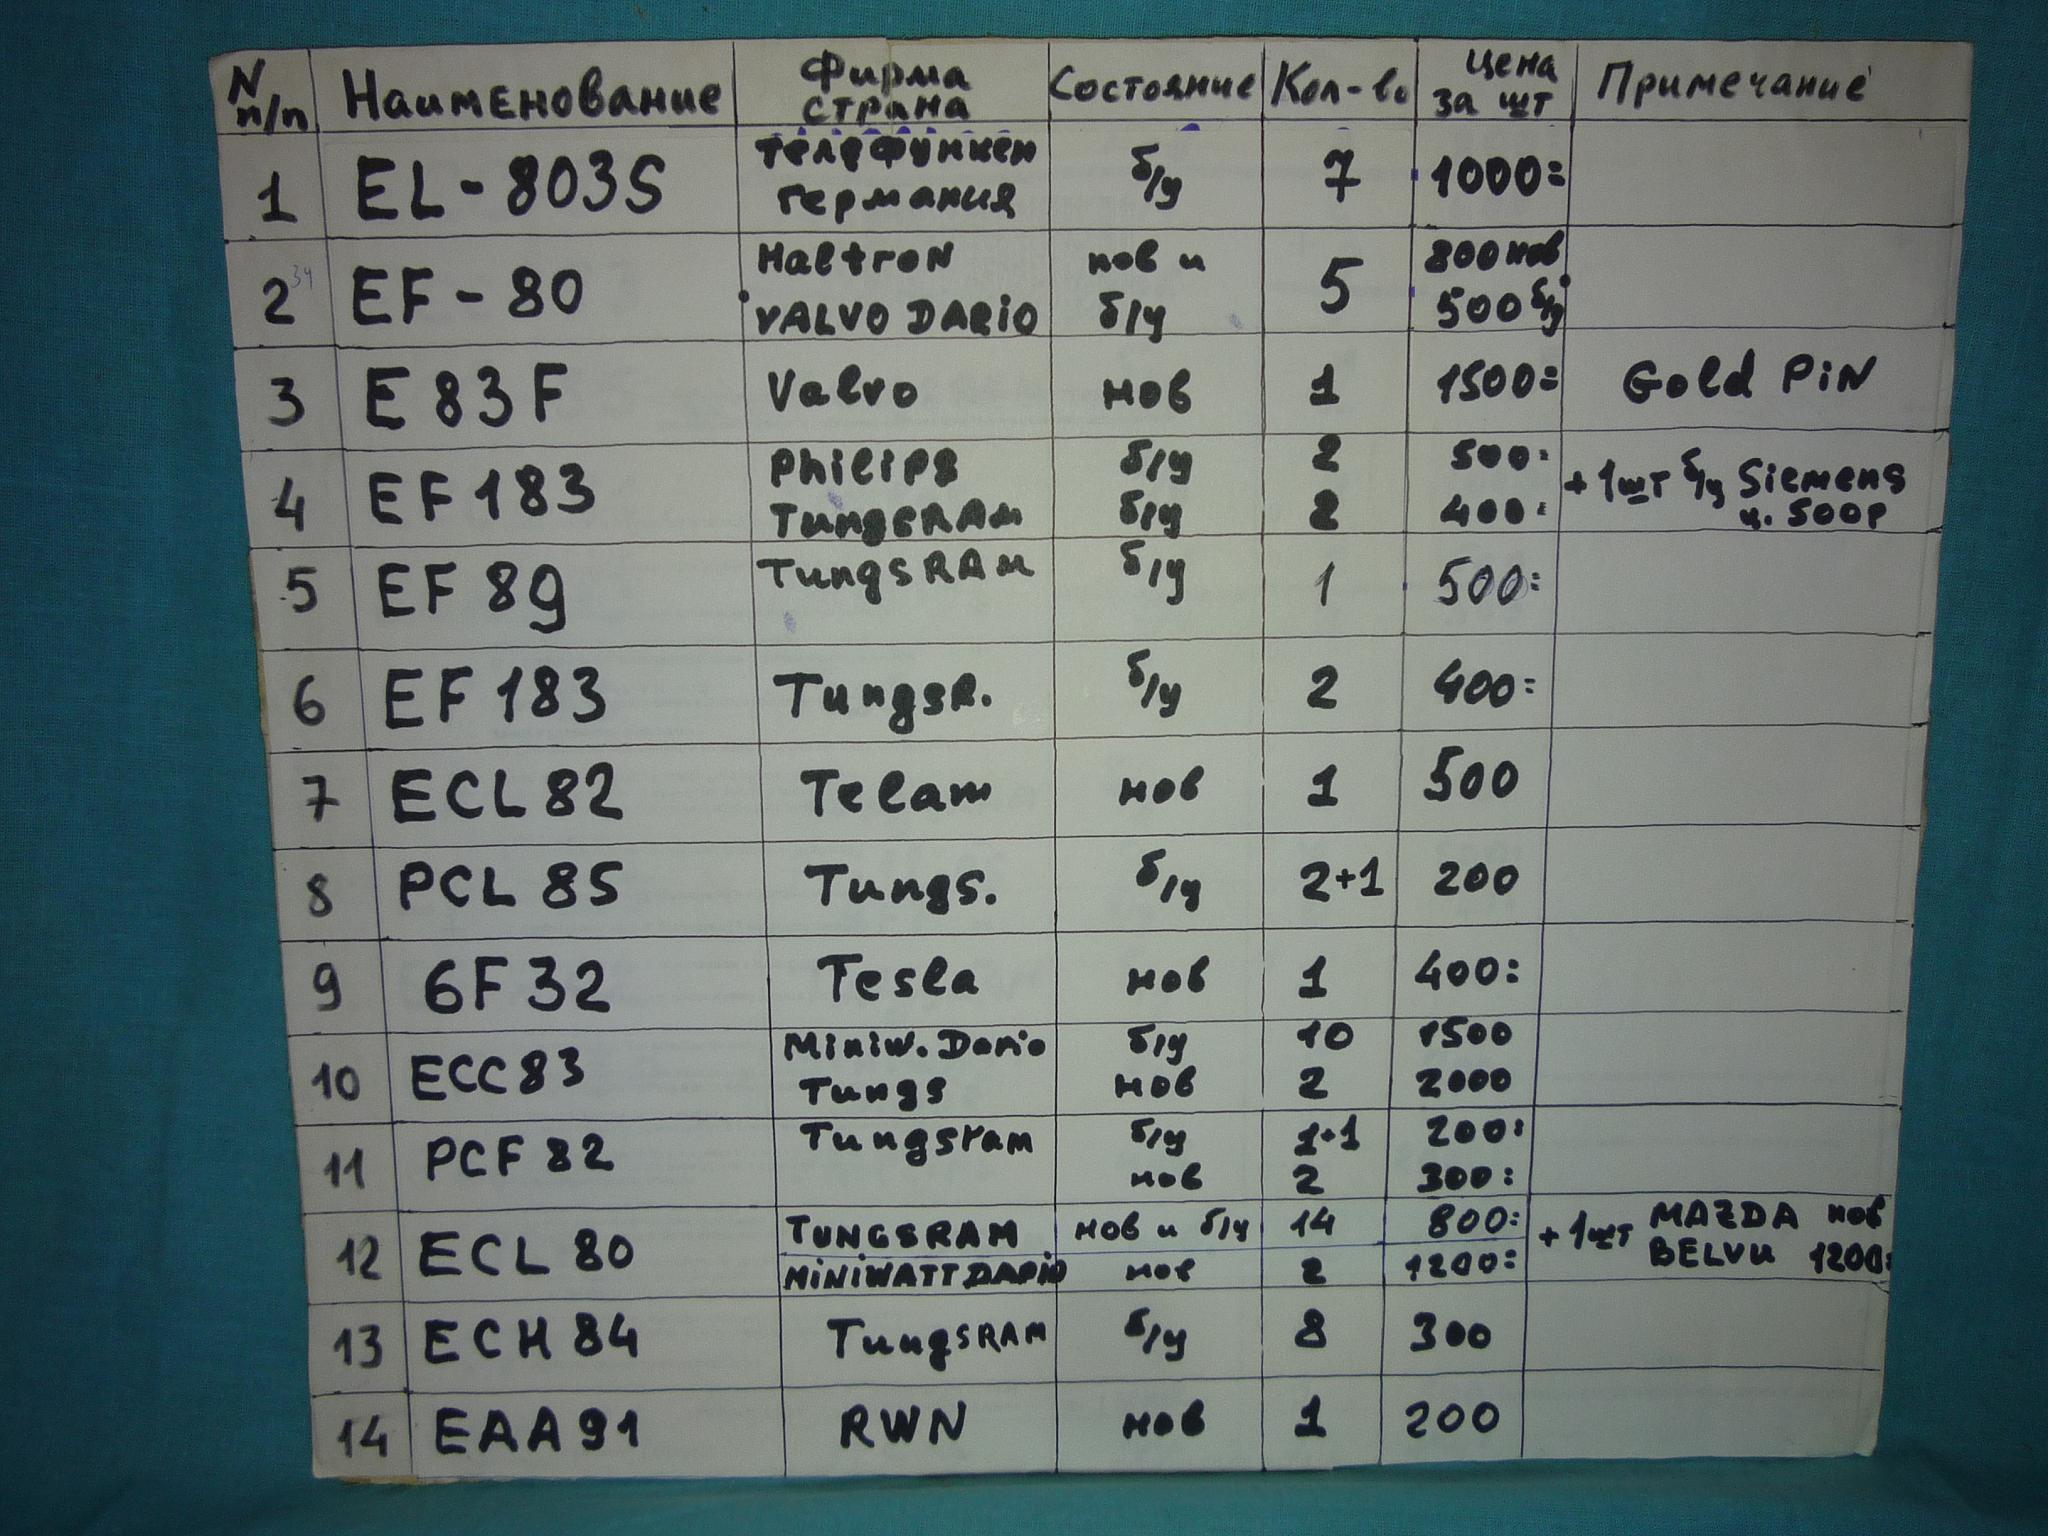 N п/п Наименование Фирма страна Состояние Кол-во Цена за шт Примечание
1 EL-803S Телефункен германия б/у 7 1000=
2 EF-80 Haltron VALVO DARiO нов и б/у 5 800 нов 500 б/у
3 E83F Valvo нов 1 1500= Gold PiN
4 EF183 Philips б/у 2 500= +1шт б/у Siemens ц. 500р
TungsRAM б/у 2 400=
5 EF89 TungsRAM б/у 1 500=
6 EF183 TungsR. б/у 2 400=
7 ECL82 Telam нов 1 500
8 PCL85 Tungs. б/у 2+1 200
9 6F32 Tesla нов 1 400=
10 ECC83 Miniw. Dario б/у 10 1500
Tungs нов 2 2000
11 PCF82 Tungsram б/у 1+1 200=
нов 2 300=
12 ECL80 TUNGSRAM нов и б/у 14 800= +1шт MAZDA BELVU нов 1200=
MiNiWATT DARiO нов 2 1200=
13 ECH84 TungsRAM б/у 8 300
14 EAA91 RWN нов 1 200